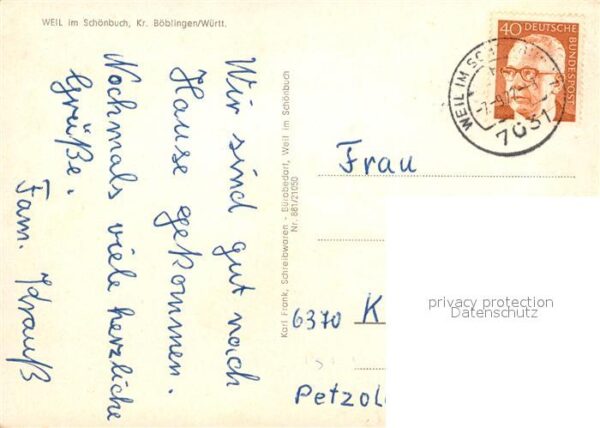 WEIL im Schönbuch, Kr. Böblingen/Württ.
Wir sind gut nach
Hause gekommen.
Nochmals viele herzliche
Grüße.
Fam. Strauß
Karl Frank, Schreibwaren - Bürobedarf, Weil im Schönbuch
Nr. 881/21050
40 DEUTSCHE
BUNDESPOST
WEIL IM
7031
Frau
6370 K
Petzol
privacy protection
Datenschutz